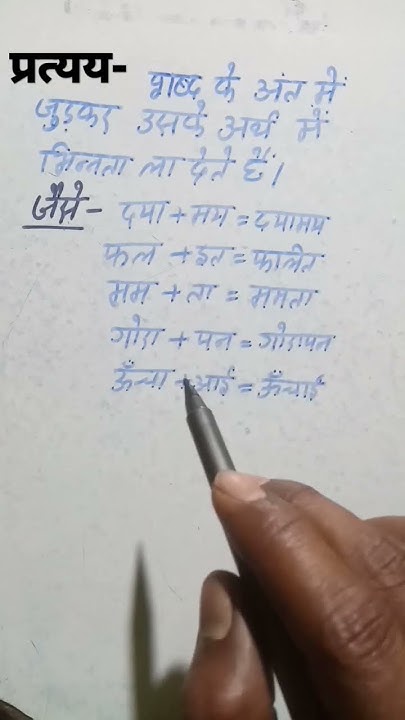 प्रत्यय- शब्द के अंत में
जुड़कर उसके अर्थ में
भिन्नता ला देते हैं।
जैसे- दया + मय = दयामय
फल + इत = फलित
मम + ता = ममता
गोरा + पन = गोरापन
ऊँचा + आई = ऊँचाई